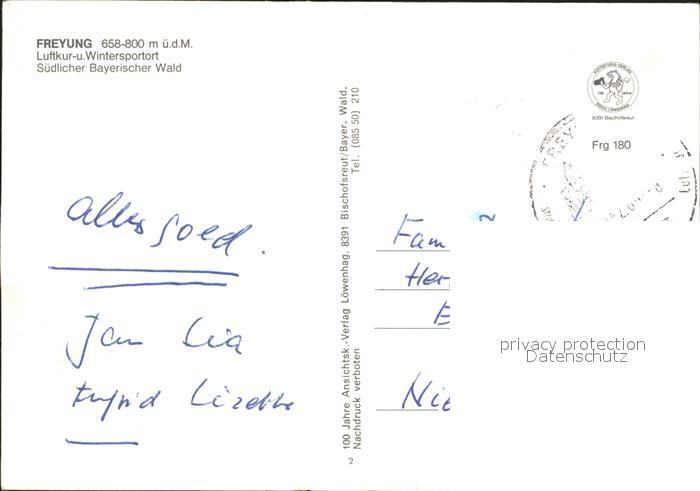 FREYUNG 658-800 m ü.d.M.
Luftkur-u.Wintersportort
Südlicher Bayerischer Wald
Alles goed.
Jan Lia
Ingrid Lizette
100 Jahre Ansichtsk.-Verlag Löwenhag, 8391 Bischofsreut/Bayer. Wald.
Nachdruck verboten
Tel. (085 50) 210
2
8391 Bischofsreut
Frg 180
FREY
Fam
Her
E
Nie
privacy protection
Datenschutz